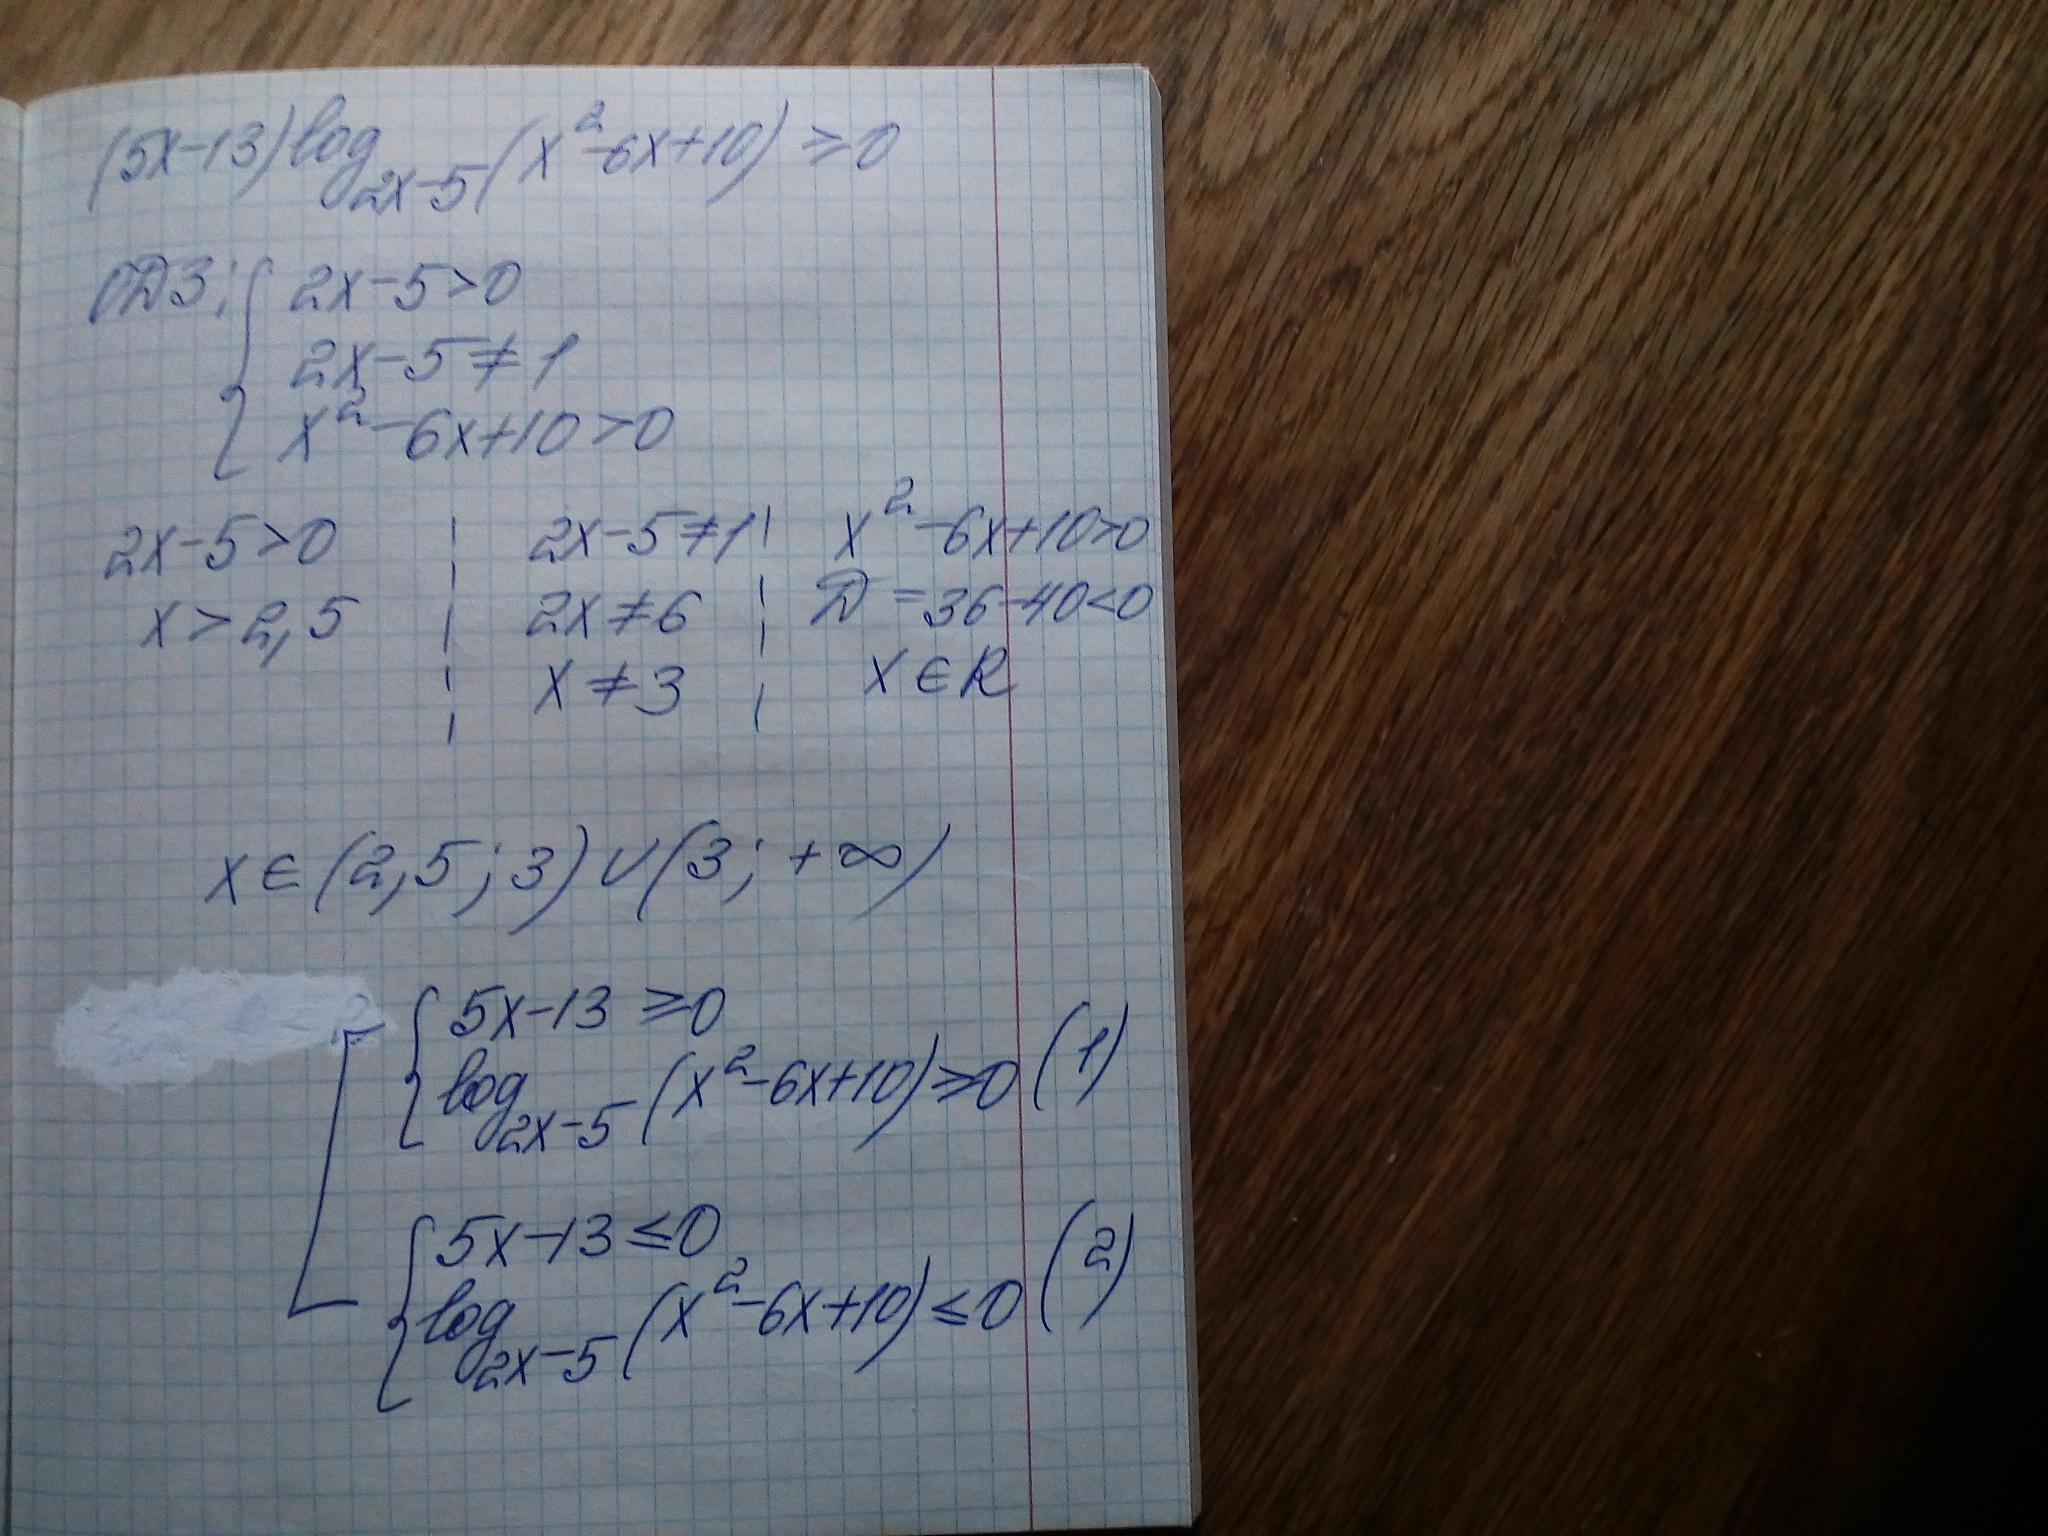 (5x-13)log₂ₓ₋₅(x²-6x+10) ≥ 0
ОДЗ: { 2x-5>0
2x-5≠1
x²-6x+10>0
2x-5>0 | 2x-5≠1 | x²-6x+10>0
x>2,5 | 2x≠6 | D=36-40<0
x≠3 | x∈R
x∈(2,5;3)∪(3;+∞)
[ { 5x-13≥0
log₂ₓ₋₅(x²-6x+10)≥0 (1)
{ 5x-13≤0
log₂ₓ₋₅(x²-6x+10)≤0 (2)